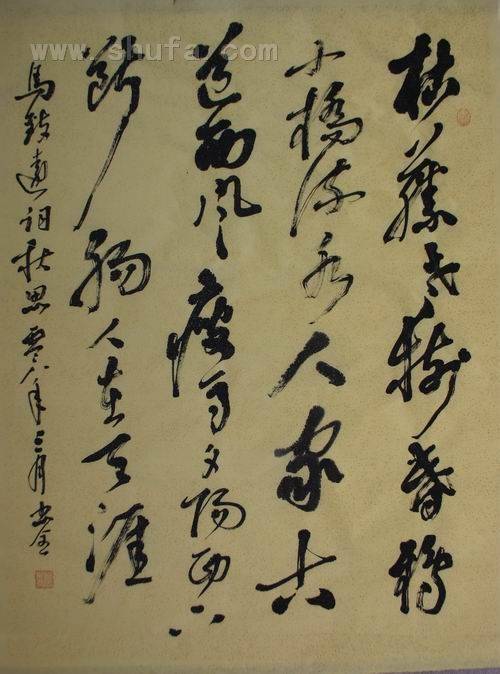 www.shufa.com
枯藤老树昏鸦
小橋流水人家古
道西风瘦马夕阳西下
断肠人在天涯
馬致遠词秋思零八年三月